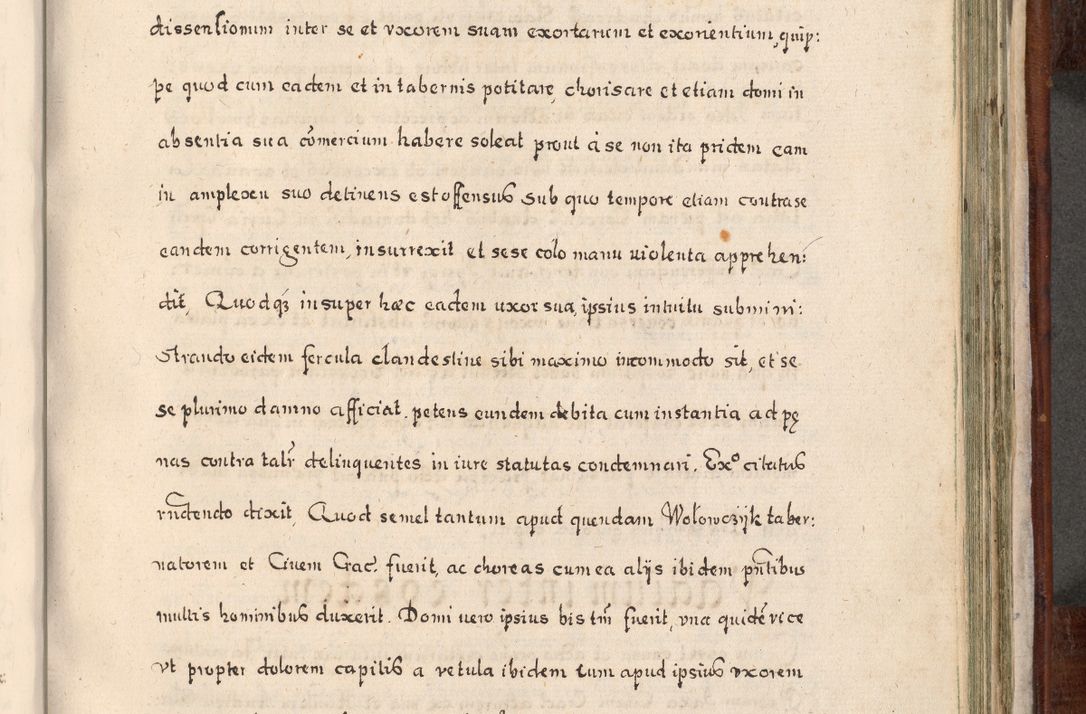 dissensionum inter se et vxorem suam exortarum et exorientium, quip:
pe quod cum eadem et in tabernis potitare, chorisare et etiam domi in
absentia sua cōmercium habere soleat prout à se non ita pridem eam
in amplexu suo detinens est offensus Sub quo tempore etiam contra se
eandem corrigentem, insurrexit et sese colo manu uiolenta apprehen:
dit, Quodqȝ insuper hæc eadem uxor sua, ipsius intuitu submini:
strando eidem fercula clandestine sibi maximo incommodo sit, et se
se plurimo damno afficiat. petens eundem debita cum instantia ad pę
nas contra talr̄ delinquentes in iure statutas condemnari. Exº citatus
rn̄dendo dixit, Quod semel tantum apud quendam Wołowczÿk taber:
natorem et Ciuem Crac̄. fuerit, ac choreas cum ea alijs ibidem pn̄tibus
multis hominibus duxerit. Domi uero ipsius bis tm̄ fuerit, vna quidē vice
vt propter dolorem capitis a vetula ibidem tum apud ipsius vxorem